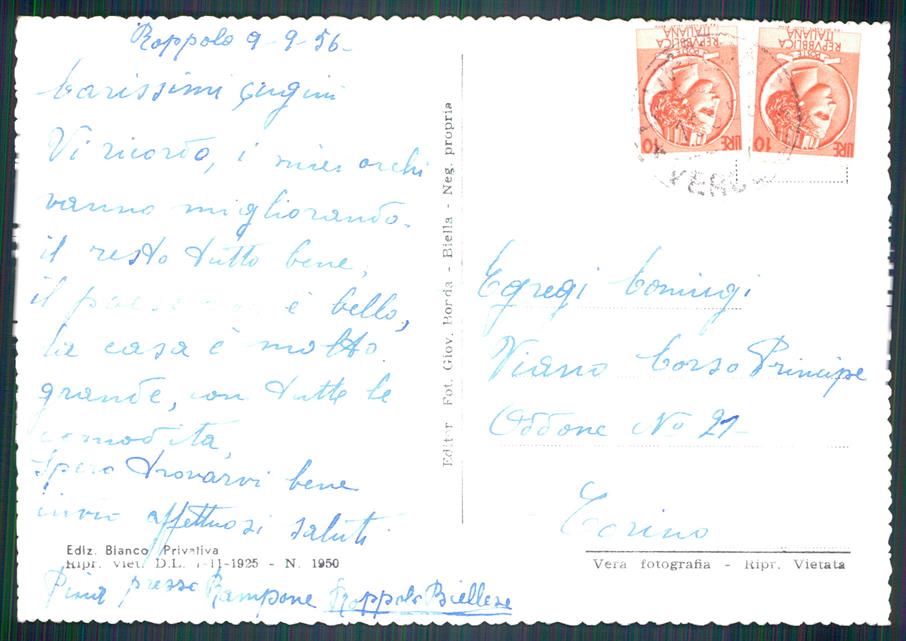 Roppolo 9-9-56-
Carissimi cugini
Vi ricordo, i miei occhi
vanno migliorando.
il resto tutto bene,
il paese è bello,
la casa è molto
grande, con tutte le
comodità,
spero trovarvi bene
invio affettuosi saluti
Ediz. Bianco Privativa
Ripr. viet. D.L. 7-11-1925 - N. 1950
Pina presso Rampone Roppolo Biellese
Editor Fot. Giov. Borda - Biella - Neg. propria
REPVBBLICA
ITALIANA
POSTE
LIRE 10
REPVBBLICA
ITALIANA
POSTE
LIRE 10
Egregi Coniugi
Viano Corso Principe
Oddone No 21-
Torino
Vera fotografia - Ripr. Vietata